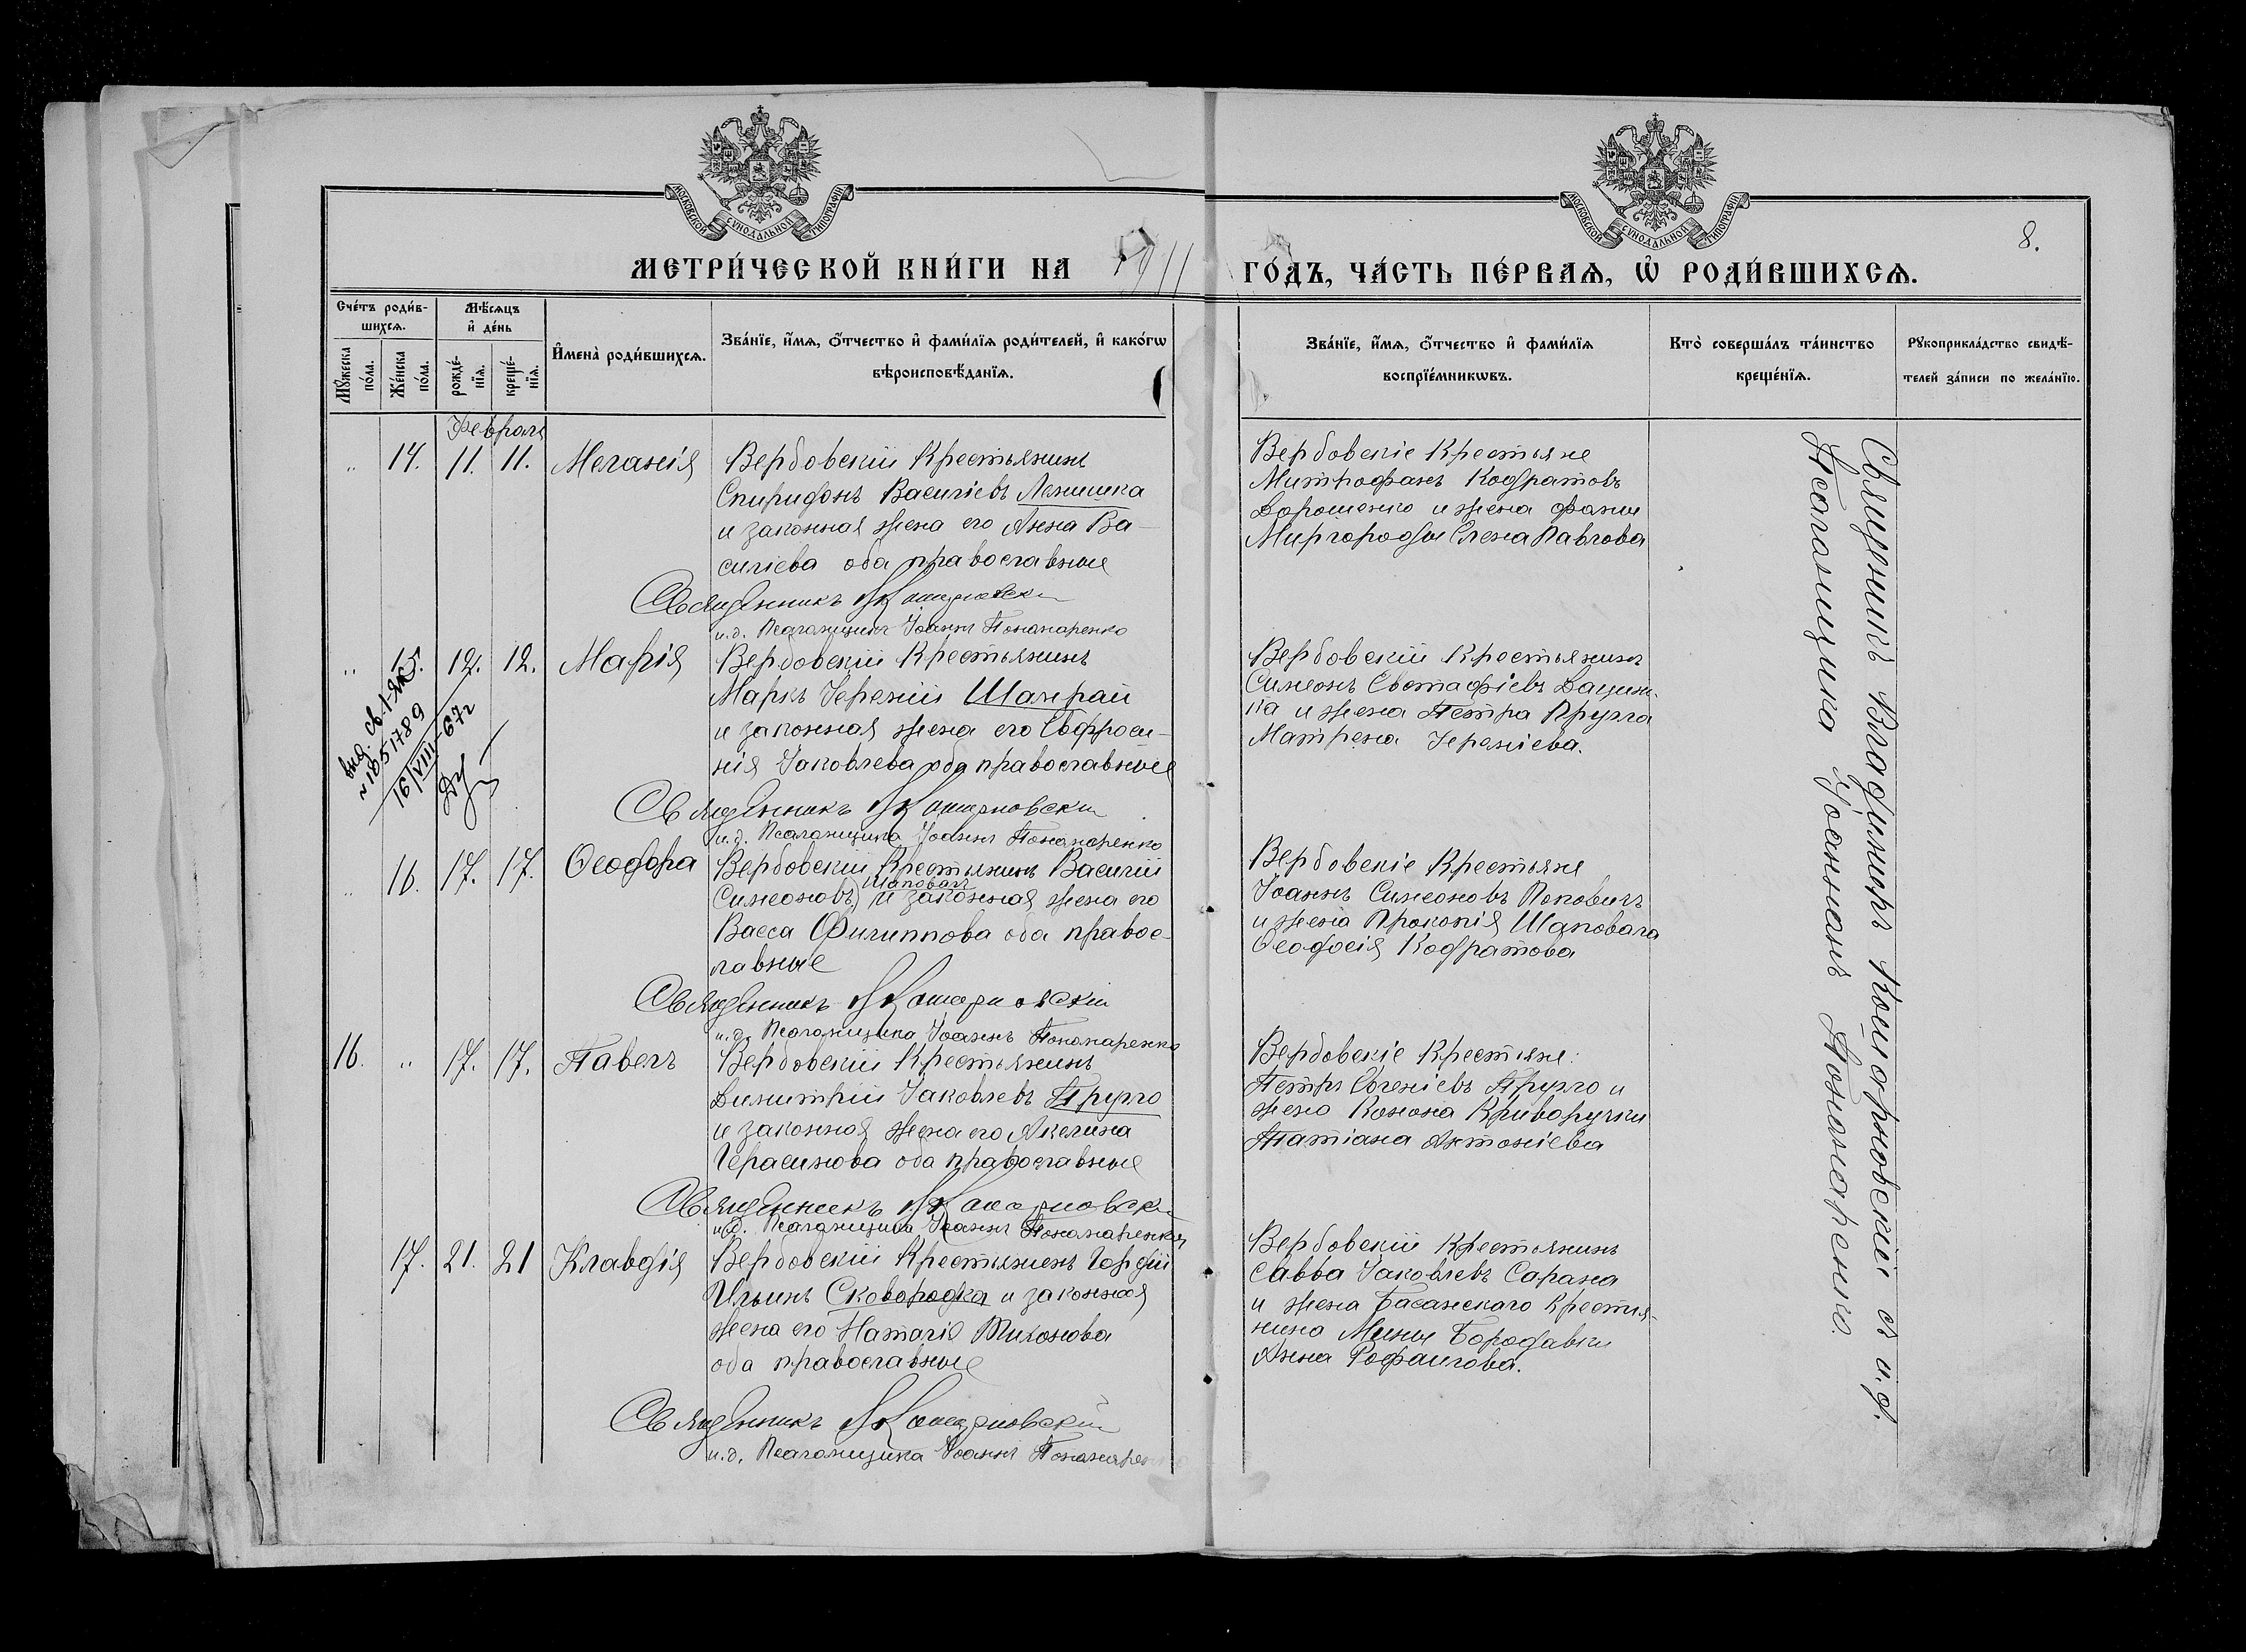 МОСКОВСКОЙ СѴНОДАЛЬНОЙ ТИПОГРАФІИ
МОСКОВСКОЙ СѴНОДАЛЬНОЙ ТИПОГРАФІИ
8.
МЕТРИ́ЧЕСКОЙ КНИ́ГИ НА 1911 ГО́ДЪ, ЧА́СТЬ ПЕ́РВАѦ, Ѡ҆ РОДИ́ВШИХСѦ.
Сче́тъ роди́в-
шихсѧ.
Мꙋ́жеска
по́ла.
Же́нска
по́ла.
Мѣ́сѧцъ
и҆ де́нь
рожде́-
нїѧ.
креще́-
нїѧ.
И҆мена̀ роди́вшихсѧ.
Зва́нїе, и҆́мѧ, ѻ҆́тчество и҆ фами́лїѧ роди́телей, и҆ како́гѡ
вѣроисповѣ́данїѧ.
Зва́нїе, и҆́мѧ, ѻ҆́тчество и҆ фами́лїѧ
воспрїе́мникѡвъ.
Кто̀ соверша́лъ та́инство
креще́нїѧ.
Рꙋкоприкла́дство свидѣ́-
телей за́писи по жела́нїю.
Февраль
" 14. 11. 11. Меланія
Вербовскій Крестьянинъ
Спиридонъ Василіевъ Лемишка
и законная жена его Анна Ва-
силіева оба православные
Священникъ
и.д. Псаломщика Іоаннъ Пономаренко
Вербовскіе Крестьяне
Митрофанъ Кодратовъ
Дорошенко и жена Фомы
Миргороды Елена Павлова
" 15. 12. 12. Марія
Вербовскій Крестьянинъ
Маркъ Іеремій Шамрай
и законная жена его Евфроси-
нія Іаковлева оба православные
Священникъ
и.д. Псаломщика Іоаннъ Пономаренко
выд. св. I-ЯЮ
№ 1851789
16/VIII-67г
Вербовскій Крестьянинъ
Симеонъ Евстафіевъ Дацен-
ка и жена Петра Пругла
Матрена Іереміева.
" 16. 17. 17. Ѳеодора
Вербовскій Крестьянинъ Василій
Симеоновъ Шаповалъ и законная жена его
Васса Филиппова оба правос-
лавные
Священникъ
и.д. Псаломщика Іоаннъ Пономаренко
Вербовскіе Крестьяне
Іоаннъ Симеоновъ Поповичъ
и жена Прокопія Шаповала
Ѳеодосія Кодратова
16. " 17. 17. Павелъ
Вербовскій Крестьянинъ
Димитрій Іаковлевъ Пругло
и законная жена его Акелина
Герасимова оба православные
Священникъ
и.д. Псаломщика Іоаннъ Пономаренко
Вербовскіе Крестьяне:
Петръ Евгеніевъ Пругло и
жена Конона Криворучки
Татіана Антоніева
17. 21. 21 Клавдія
Вербовскій Крестьянинъ Гордій
Ильинъ Сковородка и законная
жена его Наталія Тихонова
оба православные
Священникъ
и.д. Псаломщика Іоаннъ Пономаренко
Вербовскій Крестьянинъ
Савва Іаковлевъ Сарана
и жена Басанскаго Крестья-
нина Мины Бородавки
Анна Рофаилова.
Священникъ Владиміръ Кошарновскій съ и.д.
Псаломщика Іоанномъ Пономаренко.